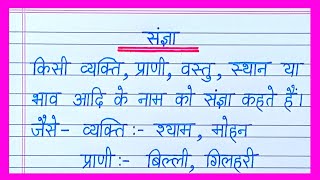 संज्ञा
किसी व्यक्ति, प्राणी, वस्तु, स्थान या
भाव आदि के नाम को संज्ञा कहते हैं।
जैसे- व्यक्ति :- श्याम, मोहन
प्राणी :- बिल्ली, गिलहरी